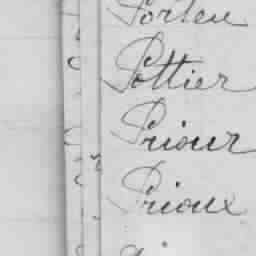 Porteu
Pottier
Priour
Prioux